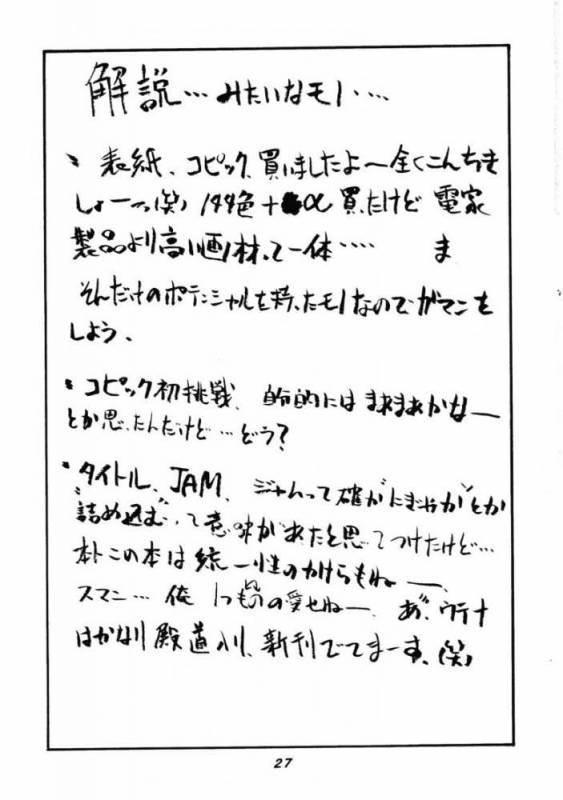 解説…みたいなモノ‥‥
・表紙、コピック、買いましたよ〜全くこんちき
しょーっ(笑) 144色+α買ったけど 電家
製品より高い画材って一体‥‥ ま
そんだけのポテンシャルを持ったモノなのでガマンを
しよう。
・コピック初挑戦、自分的にはまあまあかなー
とか思ったんだけど…どう?
・タイトル、JAM、ジャムって確か"にぎやか"とか
"詰め込む"って意味があったと思ってつけたけど…
本トこの本は統一性のかけらもねー、
スマン… 俺 1つもんの愛せねー、あ、ウテナ
はかなり殿道入り、新刊でてまーす、(笑)
27